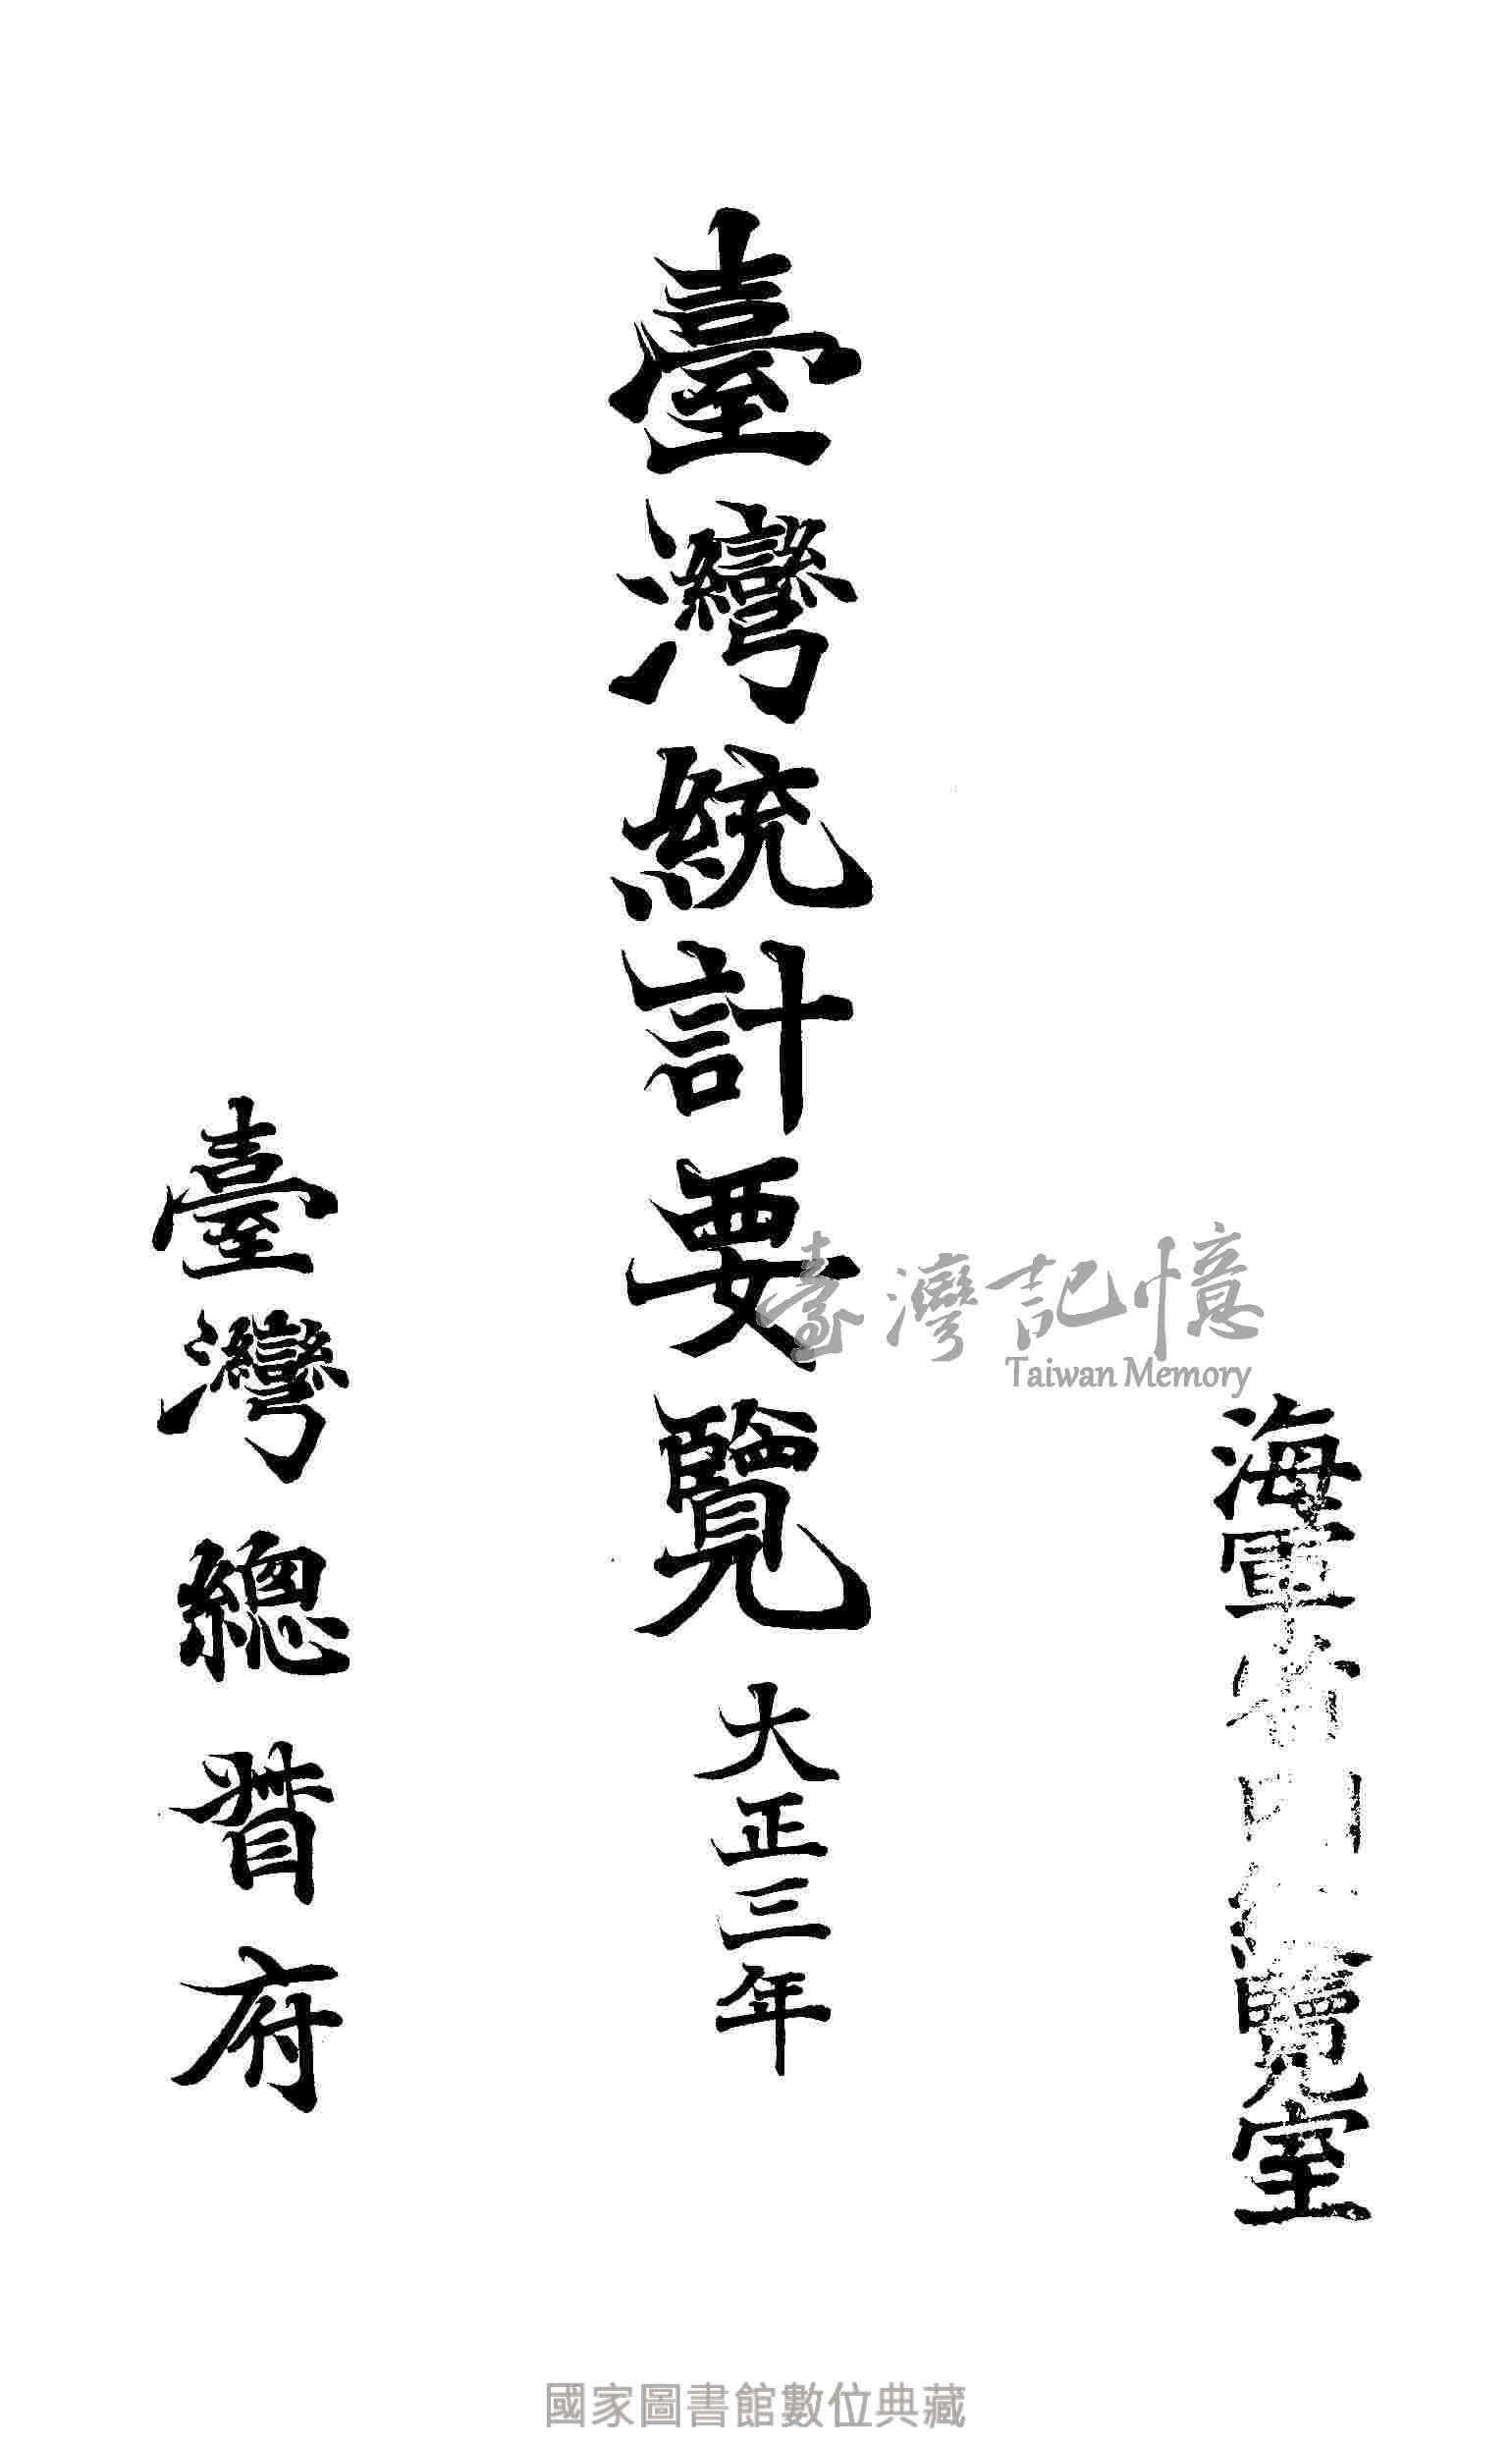 海軍省覽室
臺灣統計要覽 大正三年
臺灣總督府
臺灣記憶
Taiwan Memory
國家圖書館數位典藏